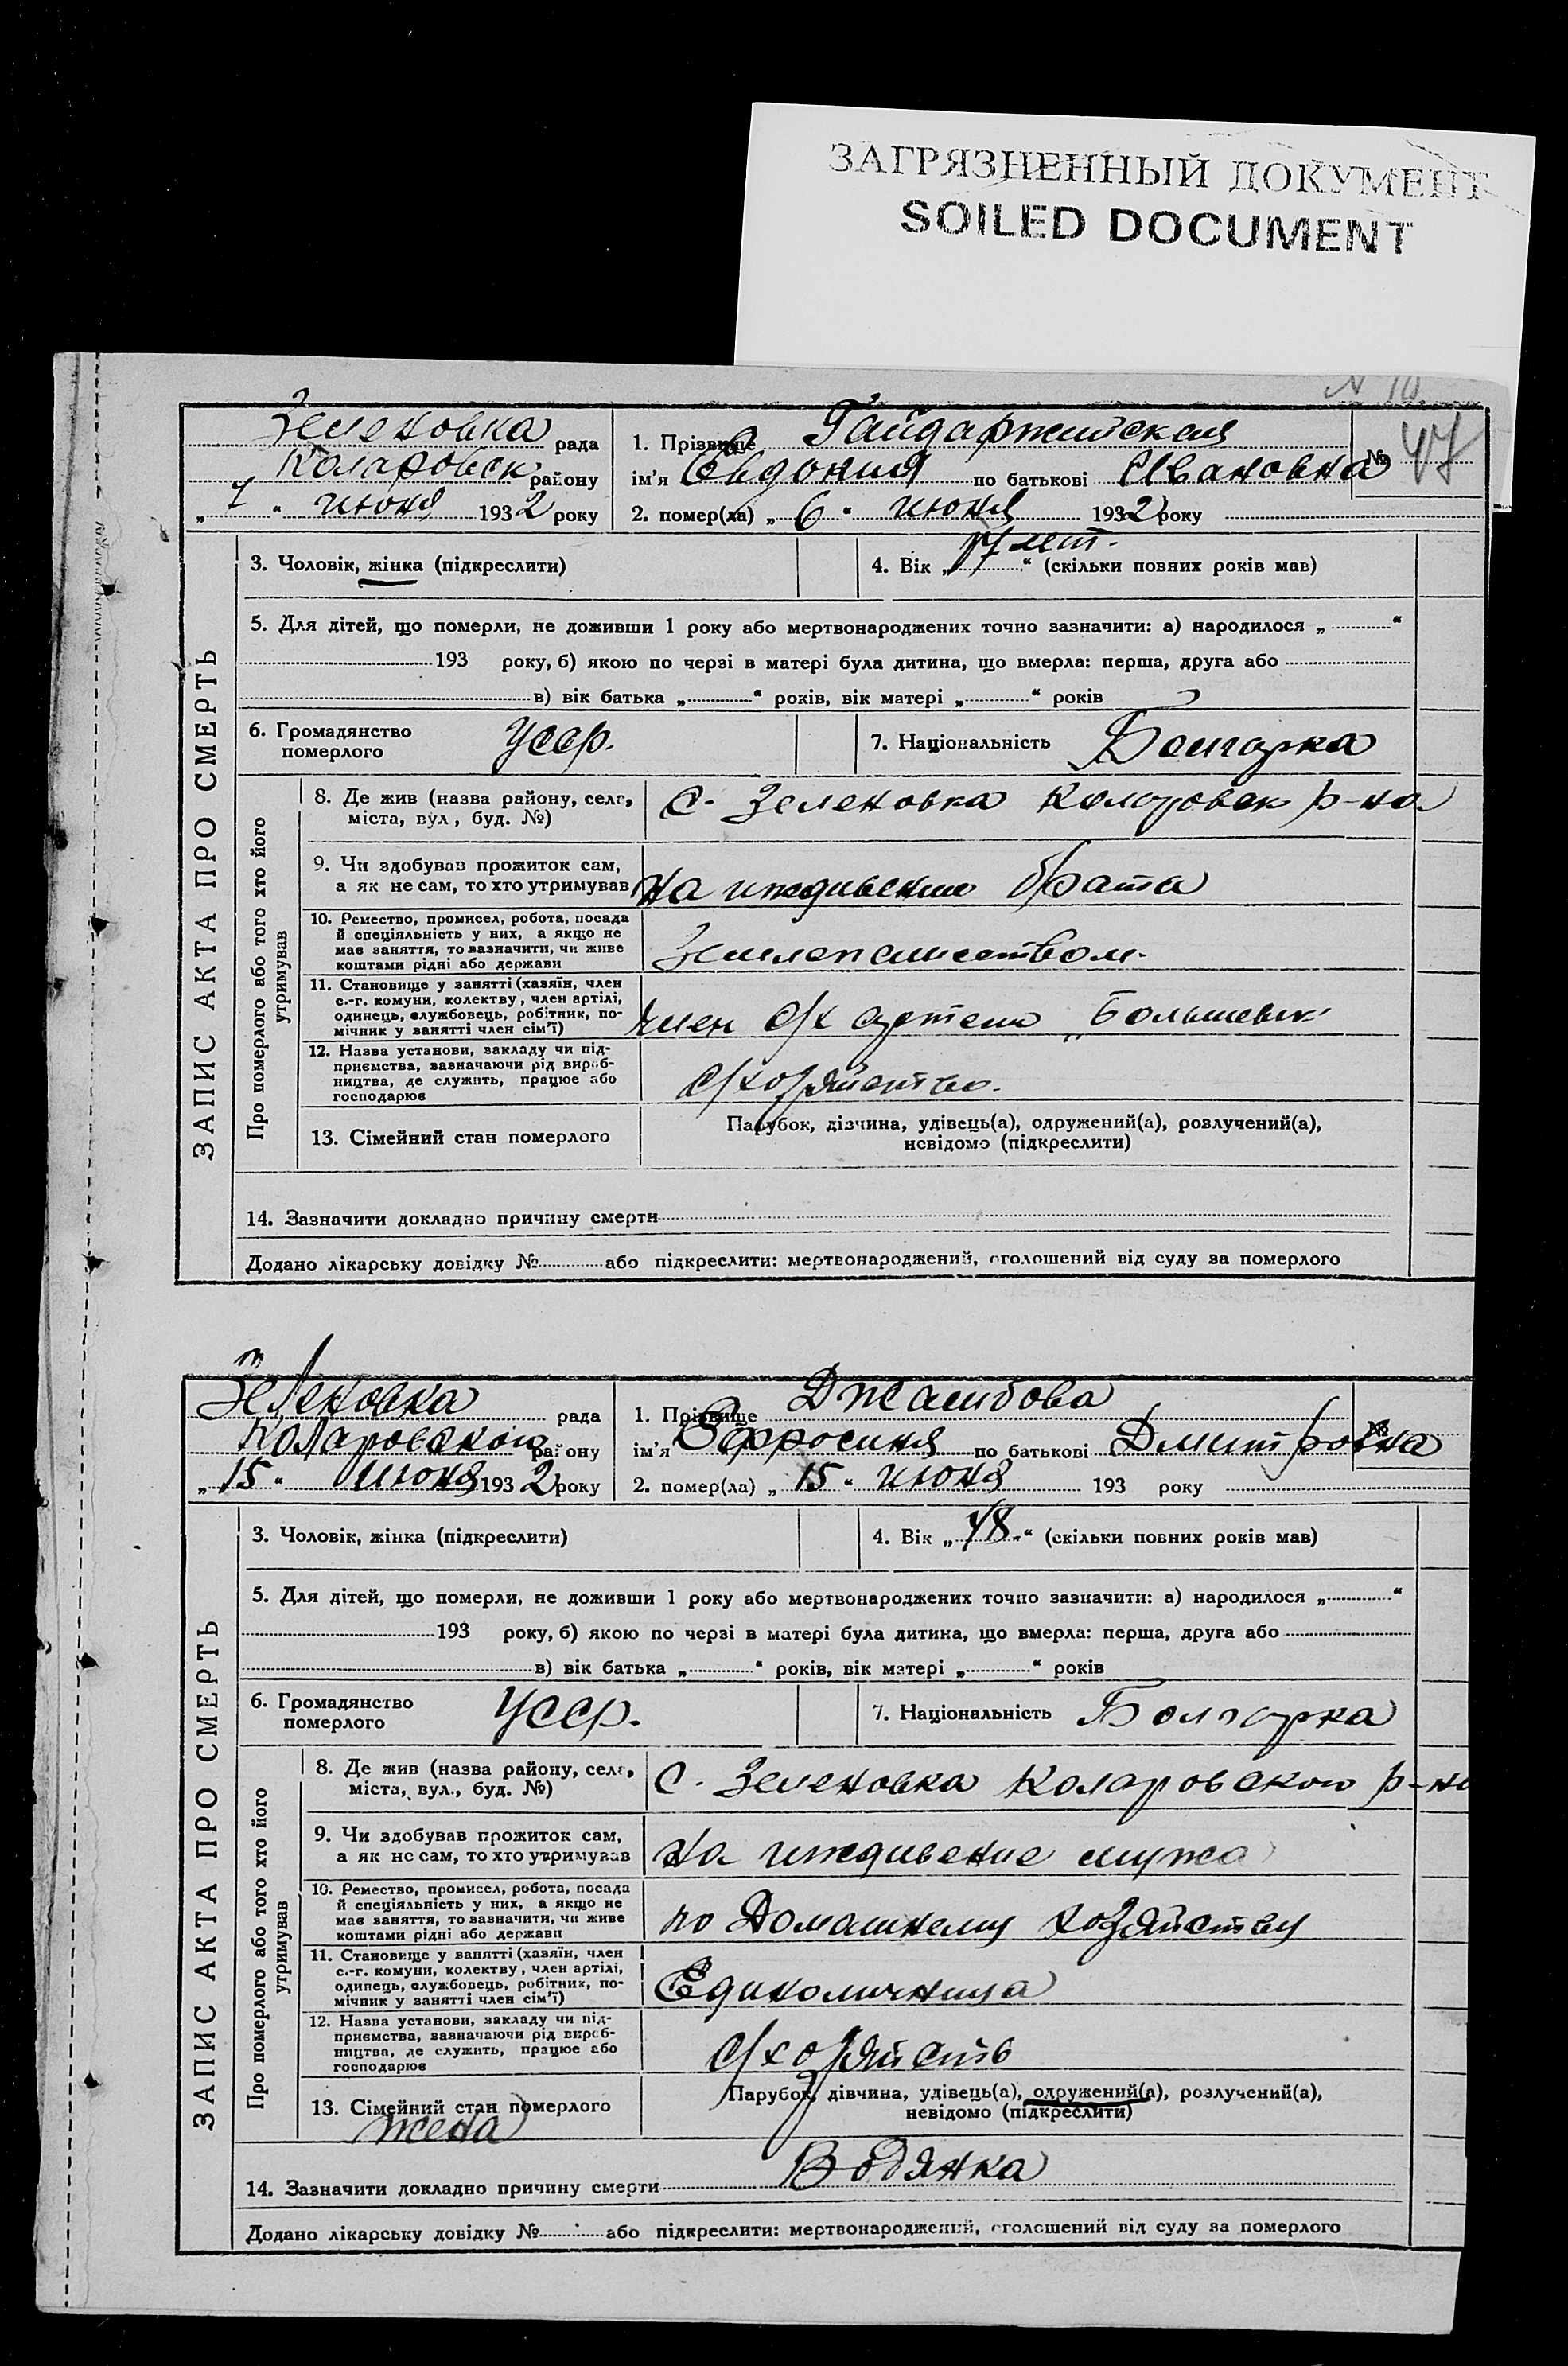 ЗАГРЯЗНЕННЫЙ ДОКУМЕНТ
SOILED DOCUMENT
N 10
ЗАПИС АКТА ПРО СМЕРТЬ
Зеленовка рада
Коларовск району
„7“ июня 1932 року
1. Прізвище Гайдаржийская
№ 47
ім'я Евдокия по батькові Ивановна
2. помер(ла) „6“ июня 1932 року
3. Чоловік, жінка (підкреслити)
4. Вік „17 лет.“ (скільки повних років мав)
5. Для дітей, що померли, не доживши 1 року або мертвонароджених точно зазначити: а) народилося „ “
193 року, б) якою по черзі в матері була дитина, що вмерла: перша, друга або
в) вік батька „ “ років, вік матері „ “ років
6. Громадянство померлого Усср.
7. Національність Болгарка
Про померлого або того хто його утримував
8. Де жив (назва району, села,
міста, вул, буд. №)
С. Зеленовка Коларовск р-на
9. Чи здобував прожиток сам,
а як не сам, то хто утримував
На иждивению брата
10. Ремество, промисел, робота, посада
й спеціяльність у них, а якщо не
має заняття, то зазначити, чи живе
коштами рідні або держави
11. Становище у занятті (хазяїн, член
с.-г. комуни, колективу, член артілі,
одинець, службовець, робітник, по-
мічник у занятті член сім'ї)
член с/х артели „Большевик“
12. Назва установи, закладу чи під-
приємства, зазначаючи рід вироб-
ництва, де служить, працює або
господарює
с/хозяйство.
13. Сімейний стан померлого
Парубок, дівчина, удівець(а), одружений(а), розлучений(а),
невідомо (підкреслити)
14. Зазначити докладно причину смерти
Додано лікарську довідку № або підкреслити: мертвонароджений, оголошений від суду за померлого
ЗАПИС АКТА ПРО СМЕРТЬ
Зеленовка рада
Коларовского району
„15“ июня 1932 року
1. Прізвище Джамбова
№
ім'я Ефросиня по батькові Дмитровна
2. помер(ла) „15“ июня 193 року
3. Чоловік, жінка (підкреслити)
4. Вік „48“ (скільки повних років мав)
5. Для дітей, що померли, не доживши 1 року або мертвонароджених точно зазначити: а) народилося „ “
193 року, б) якою по черзі в матері була дитина, що вмерла: перша, друга або
в) вік батька „ “ років, вік матері „ “ років
6. Громадянство померлого Усср.
7. Національність Болгарка
Про померлого або того хто його утримував
8. Де жив (назва району, села,
міста, вул., буд. №)
С. Зеленовка Коларовского р-на
9. Чи здобував прожиток сам,
а як не сам, то хто утримував
На иждивение мужа
10. Ремество, промисел, робота, посада
й спеціяльність у них, а якщо не
має заняття, то зазначити, чи живе
коштами рідні або держави
по Домашнему хозяйству
11. Становище у занятті (хазяїн, член
с.-г. комуни, колективу, член артілі,
одинець, службовець, робітник, по-
мічник у занятті член сім'ї)
Единоличница
12. Назва установи, закладу чи під-
приємства, зазначаючи рід вироб-
ництва, де служить, працює або
господарює
с/хозяйств
13. Сімейний стан померлого
жена
Парубок, дівчина, удівець(а), одружений(а), розлучений(а),
невідомо (підкреслити)
14. Зазначити докладно причину смерти Водянка
Додано лікарську довідку № або підкреслити: мертвонароджений, оголошений від суду за померлого